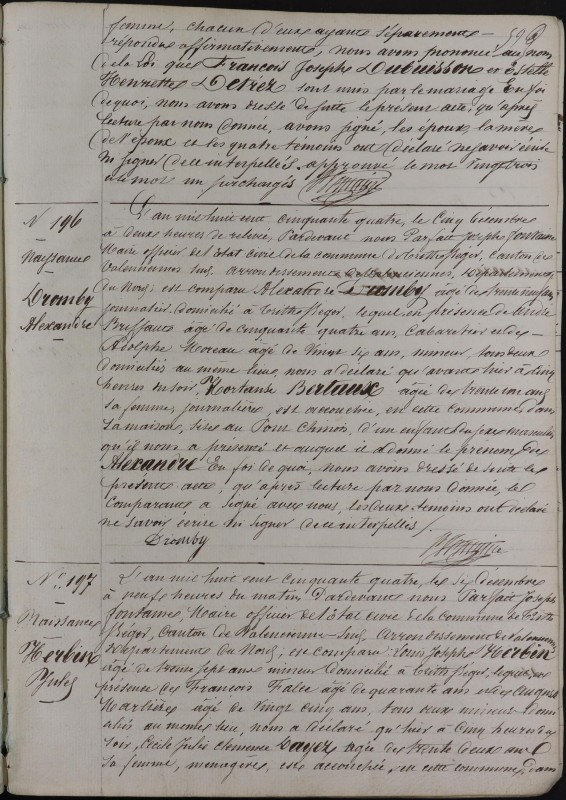 femme, chacun d'eux ayant séparément
répondu affirmativement, nous avons prononcé au nom
de la loi que François Joseph Dubuisson et Estelle
Henriette Detrez sont unis par le mariage. En foi
de quoi, nous avons dressé de suite le présent acte, qu'après
lecture par nous donnée, avons signé, les époux, la mère
de l'époux et les quatre témoins ont déclaré ne savoir écrire
ni signer de ce interpellés. approuvé le mot vingt trois
et le mot un surchargés
N° 196
Naissance
Dromby
Alexandre
L'an mil huit cent cinquante quatre, le cinq décembre
à deux heures de relevée, Pardevant nous Parfait Joseph Fontaine
Maire officier de l'Etat civil de la commune de Trith St Léger, Canton de
Valenciennes Sud, arrondissement de Valenciennes, Département
du Nord, est comparu Alexandre Dromby âgé de trente
journalier domicilié à Trith St Léger, lequel en présence de
âgé de cinquante quatre ans, Cabaretier et de
Adolphe Moreau âgé de vingt six ans, mineur, tous deux
domiciliés au même lieu, nous a déclaré qu'avant hier à cinq
heures du soir, Hortense Bertaux âgée de trente ans
sa femme, journalière, est accouchée, en cette commune, dans
sa maison, sise au Pont Chinois, d'un enfant du sexe masculin
qu'il nous a présenté et auquel il a donné le prénom de
Alexandre En foi de quoi, nous avons dressé de suite le
présent acte, qu'après lecture par nous donnée, le
Comparant a signé avec nous, les deux témoins ont déclaré
ne savoir écrire ni signer de ce interpellés /.
Dromby
N° 197
Naissance
Herbin
Jules
L'an mil huit cent cinquante quatre, le six décembre
à neuf heures du matin Pardevant nous Parfait Joseph
Fontaine, Maire officier de l'Etat civil de la Commune de Trith
St Léger, Canton de Valenciennes Sud, arrondissement de Valenciennes
Département du Nord, est comparu Louis Joseph Herbin
âgé de trente sept ans mineur domicilié à Trith St Léger, lequel en
présence de François Falce âgé de quarante ans et de Auguste
Carlier âgé de vingt cinq ans, tous deux mineurs domi-
ciliés au même lieu, nous a déclaré qu'hier à cinq heures du
soir, Cécile Julie Clémence Layez âgée de trente deux ans
sa femme, ménagère, est accouchée, en cette commune, dans